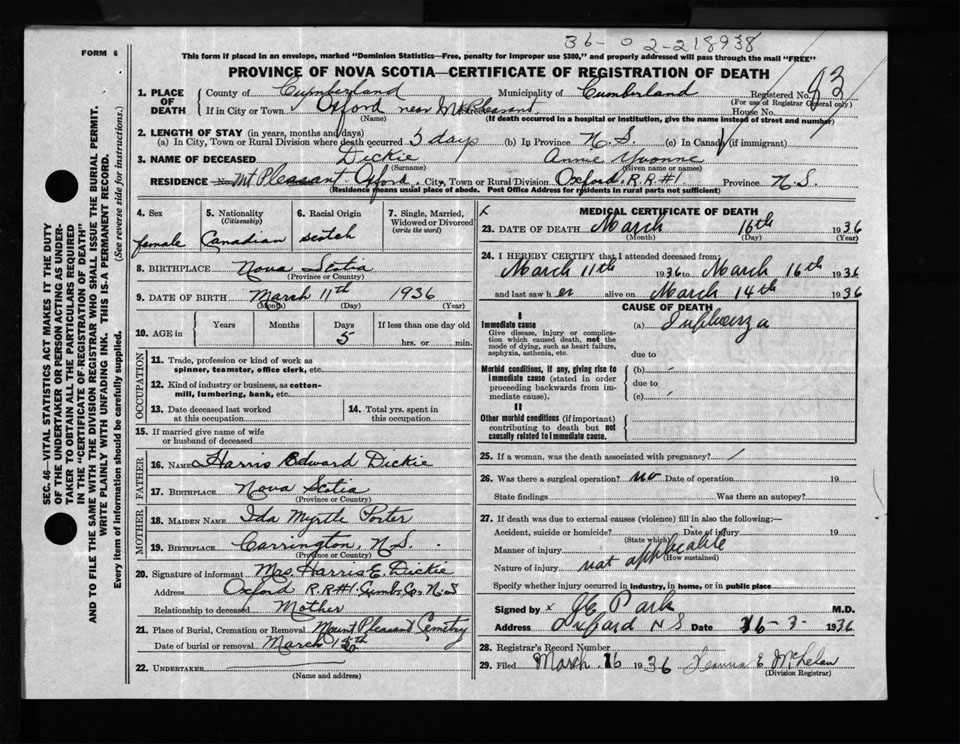 36-02-218938
FORM 6
This form if placed in an envelope, marked "Dominion Statistics—Free, penalty for improper use $300," and properly addressed will pass through the mail "FREE"
PROVINCE OF NOVA SCOTIA—CERTIFICATE OF REGISTRATION OF DEATH
1. PLACE OF DEATH
County of Cumberland Municipality of Cumberland Registered No. 83
(For use of Registrar General only)
If in City or Town Oxford near Mt Pleasant House No.
(Name) (If death occurred in a hospital or institution, give its name instead of street and number)
2. LENGTH OF STAY (in years, months and days)
(a) In City, Town or Rural Division where death occurred 5 days (b) In Province N.S. (c) In Canada (if immigrant)
3. NAME OF DECEASED Dickie Annie Yvonne
(Surname) (Given name or names)
RESIDENCE No. Mt Pleasant Oxford. City, Town or Rural Division Oxford, R.R#1. Province N.S.
(Residence means usual place of abode. Post Office Address for residents in rural parts not sufficient)
4. Sex
female
5. Nationality
(Citizenship)
Canadian
6. Racial Origin
scotch
7. Single, Married, Widowed or Divorced
(write the word)
8. BIRTHPLACE Nova Scotia
(Province or Country)
9. DATE OF BIRTH March 11th 1936
(Month) (Day) (Year)
10. AGE in Years Months Days If less than one day old
5 hrs. or min.
OCCUPATION
11. Trade, profession or kind of work as spinner, teamster, office clerk, etc.
12. Kind of industry or business, as cotton-mill, lumbering, bank, etc.
13. Date deceased last worked at this occupation
14. Total yrs. spent in this occupation
15. If married give name of wife or husband of deceased
FATHER
16. NAME Harris Edward Dickie
17. BIRTHPLACE Nova Scotia
(Province or Country)
MOTHER
18. MAIDEN NAME Ida Myrtle Porter
19. BIRTHPLACE Carrington, N.S.
(Province or Country)
20. Signature of informant Mrs Harris E. Dickie
Address Oxford R.R#1. Cumb. Co. N.S
Relationship to deceased Mother
21. Place of Burial, Cremation or Removal Mount Pleasant Cemetry
Date of burial or removal March
22. UNDERTAKER
(Name and address)
x MEDICAL CERTIFICATE OF DEATH
23. DATE OF DEATH March 16th 1936
(Month) (Day) (Year)
24. I HEREBY CERTIFY that I attended deceased from
March 11th 1936 to March 16th 1936
and last saw her alive on March 14th 1936
CAUSE OF DEATH
I
Immediate cause
Give disease, injury or complication which caused death, not the mode of dying, such as heart failure, asphyxia, asthenia, etc.
(a) Influenza
due to
Morbid conditions, if any, giving rise to immediate cause (stated in order proceeding backwards from immediate cause).
(b)
due to
(c)
II
Other morbid conditions (if important) contributing to death but not causally related to immediate cause.
25. If a woman, was the death associated with pregnancy?
26. Was there a surgical operation? no Date of operation 19
State findings Was there an autopsy?
27. If death was due to external causes (violence) fill in also the following:—
Accident, suicide or homicide? Date of injury 19
(State which)
Manner of injury
(How sustained)
Nature of injury not applicable
Specify whether injury occurred in industry, in home, or in public place
Signed by x J E Park M.D.
Address Oxford N S Date 16-3- 1936
28. Registrar's Record Number
29. Filed March 16 1936
(Division Registrar)
SEC. 46—VITAL STATISTICS ACT MAKES IT THE DUTY
OF THE UNDERTAKER OR PERSON ACTING AS UNDER-
TAKER TO OBTAIN ALL THE PARTICULARS REQUIRED
IN THE "CERTIFICATE OF REGISTRATION OF DEATH"
AND TO FILE THE SAME WITH THE DIVISION REGISTRAR WHO SHALL ISSUE THE BURIAL PERMIT.
WRITE PLAINLY WITH UNFADING INK. THIS IS A PERMANENT RECORD.
Every item of information should be carefully supplied. (See reverse side for instructions.)